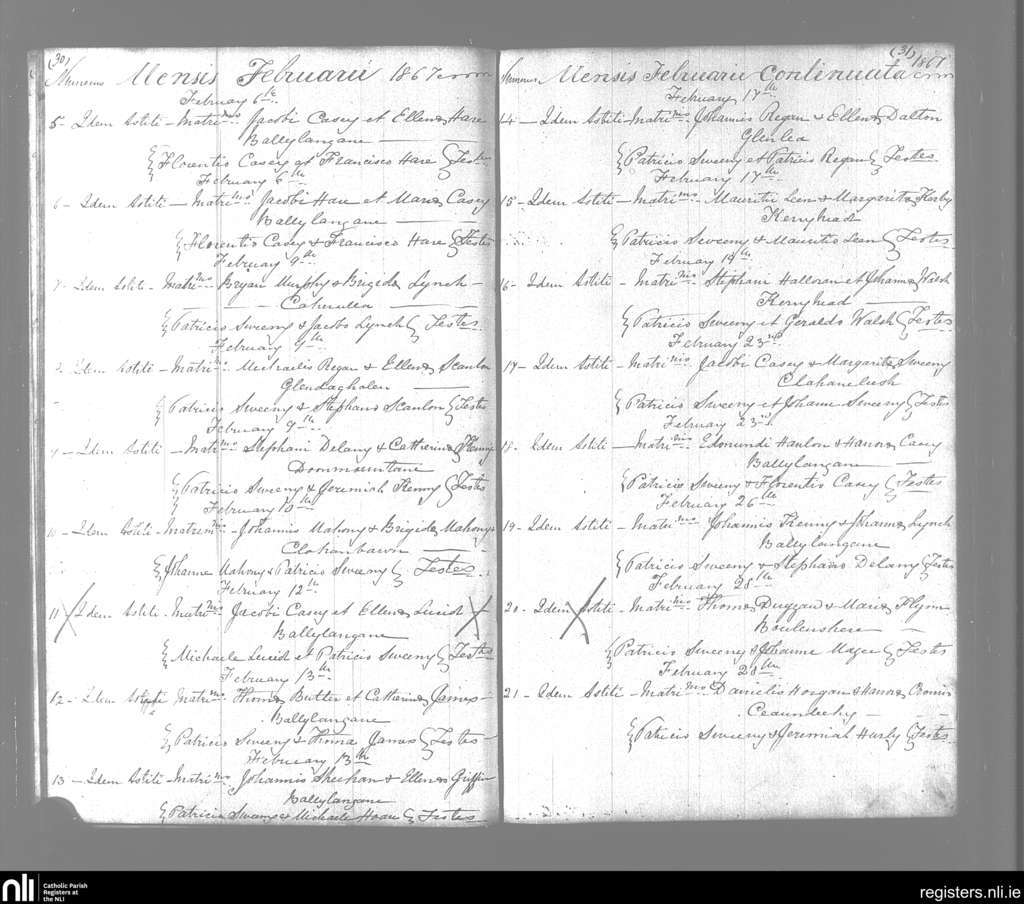 (30)
Numerus Mensis Februarii 1867
February 6th
5 - Idem Astiti - Matrimo Jacobi Casey et Ellenæ Hare
Ballylangane
Florentio Casey et Francisco Hare Testes
February 6th
6 - Idem Astiti - Matrimo Jacobi Hare et Mariæ Casey
Ballylangane
Florentio Casey & Francisco Hare Testes
February 9th
7 - Idem Astiti - Matrimo Bryan Murphy & Brigidæ Lynch
Cahenulla
Patricio Sweeny & Jacobo Lynch Testes
February 9th
Idem Astiti - Matrimo Michaelis Regan & Ellenæ Scanlon
Patricio Sweeny & Stephano Scanlon Testes
February 9th
9 - Idem Astiti - Matrimo Stephani Delany & Catherinæ
Patricio Sweeny & Jeremiah Testes
February 10th
10 - Idem Astiti - Matrimo Johannis Mahony & Brigidæ Mahony
Clahanbawn
Johanne Mahony & Patricio Sweeny Testes
February 12th
11 Idem Astiti - Matrimo Jacobi Casey et Ellenæ
Ballylangane
Michaele et Patricio Sweeny Testes
February 13th
12 - Idem Astiti Matrimo Thomæ Butler et Catharinæ James
Ballylangane
Patricio Sweeny & Thoma James Testes
February 13th
13 - Idem Astiti - Matrimo Johannis Sheehan & Ellenæ Griffin
Ballylangane
Patricio Sweeny & Michaele Testes
(31)
Numerus Mensis Februarii Continuata 1867
February 17th
14 - Idem Astiti - Matrimo Johannis Regan & Ellenæ Dalton
Glenlea
Patricio Sweeny et Patricio Regan Testes
February 17th
15 - Idem Astiti - Matrimo Mauritii Leen & Margaritæ Kirby
Kerryhead
Patricio Sweeny & Mauritio Leen Testes
February 19th
16 - Idem Astiti - Matrimo Stephani Halloran et Johannæ Walsh
Kerryhead
Patricio Sweeny et Geraldo Walsh Testes
February 23rd
17 - Idem Astiti - Matrimo Jacobi Casey & Margaritæ Sweeny
Clahanelesh
Patricio Sweeny et Johanne Sweeny Testes
February 23rd
18 - Idem Astiti - Matrimo Edmundi Hanlon & Hanoræ Casey
Ballylangane
Patricio Sweeny & Florentio Casey Testes
February 26th
19 - Idem Astiti - Matrimo Johannis Kenny & Johannæ Lynch
Ballylangane
Patricio Sweeny & Stephano Delany Testes
February 28th
20 - Idem Astiti - Matrimo Thomæ Duggan & Mariæ Flynn
Patricio Sweeny & Johanne Magee Testes
February 28th
21 - Idem Astiti - Matrimo Danielis Horgan & Hanoræ Cronin
Patricio Sweeny & Jeremiah Testes
nli
Catholic Parish
Registers at
the NLI
registers.nli.ie